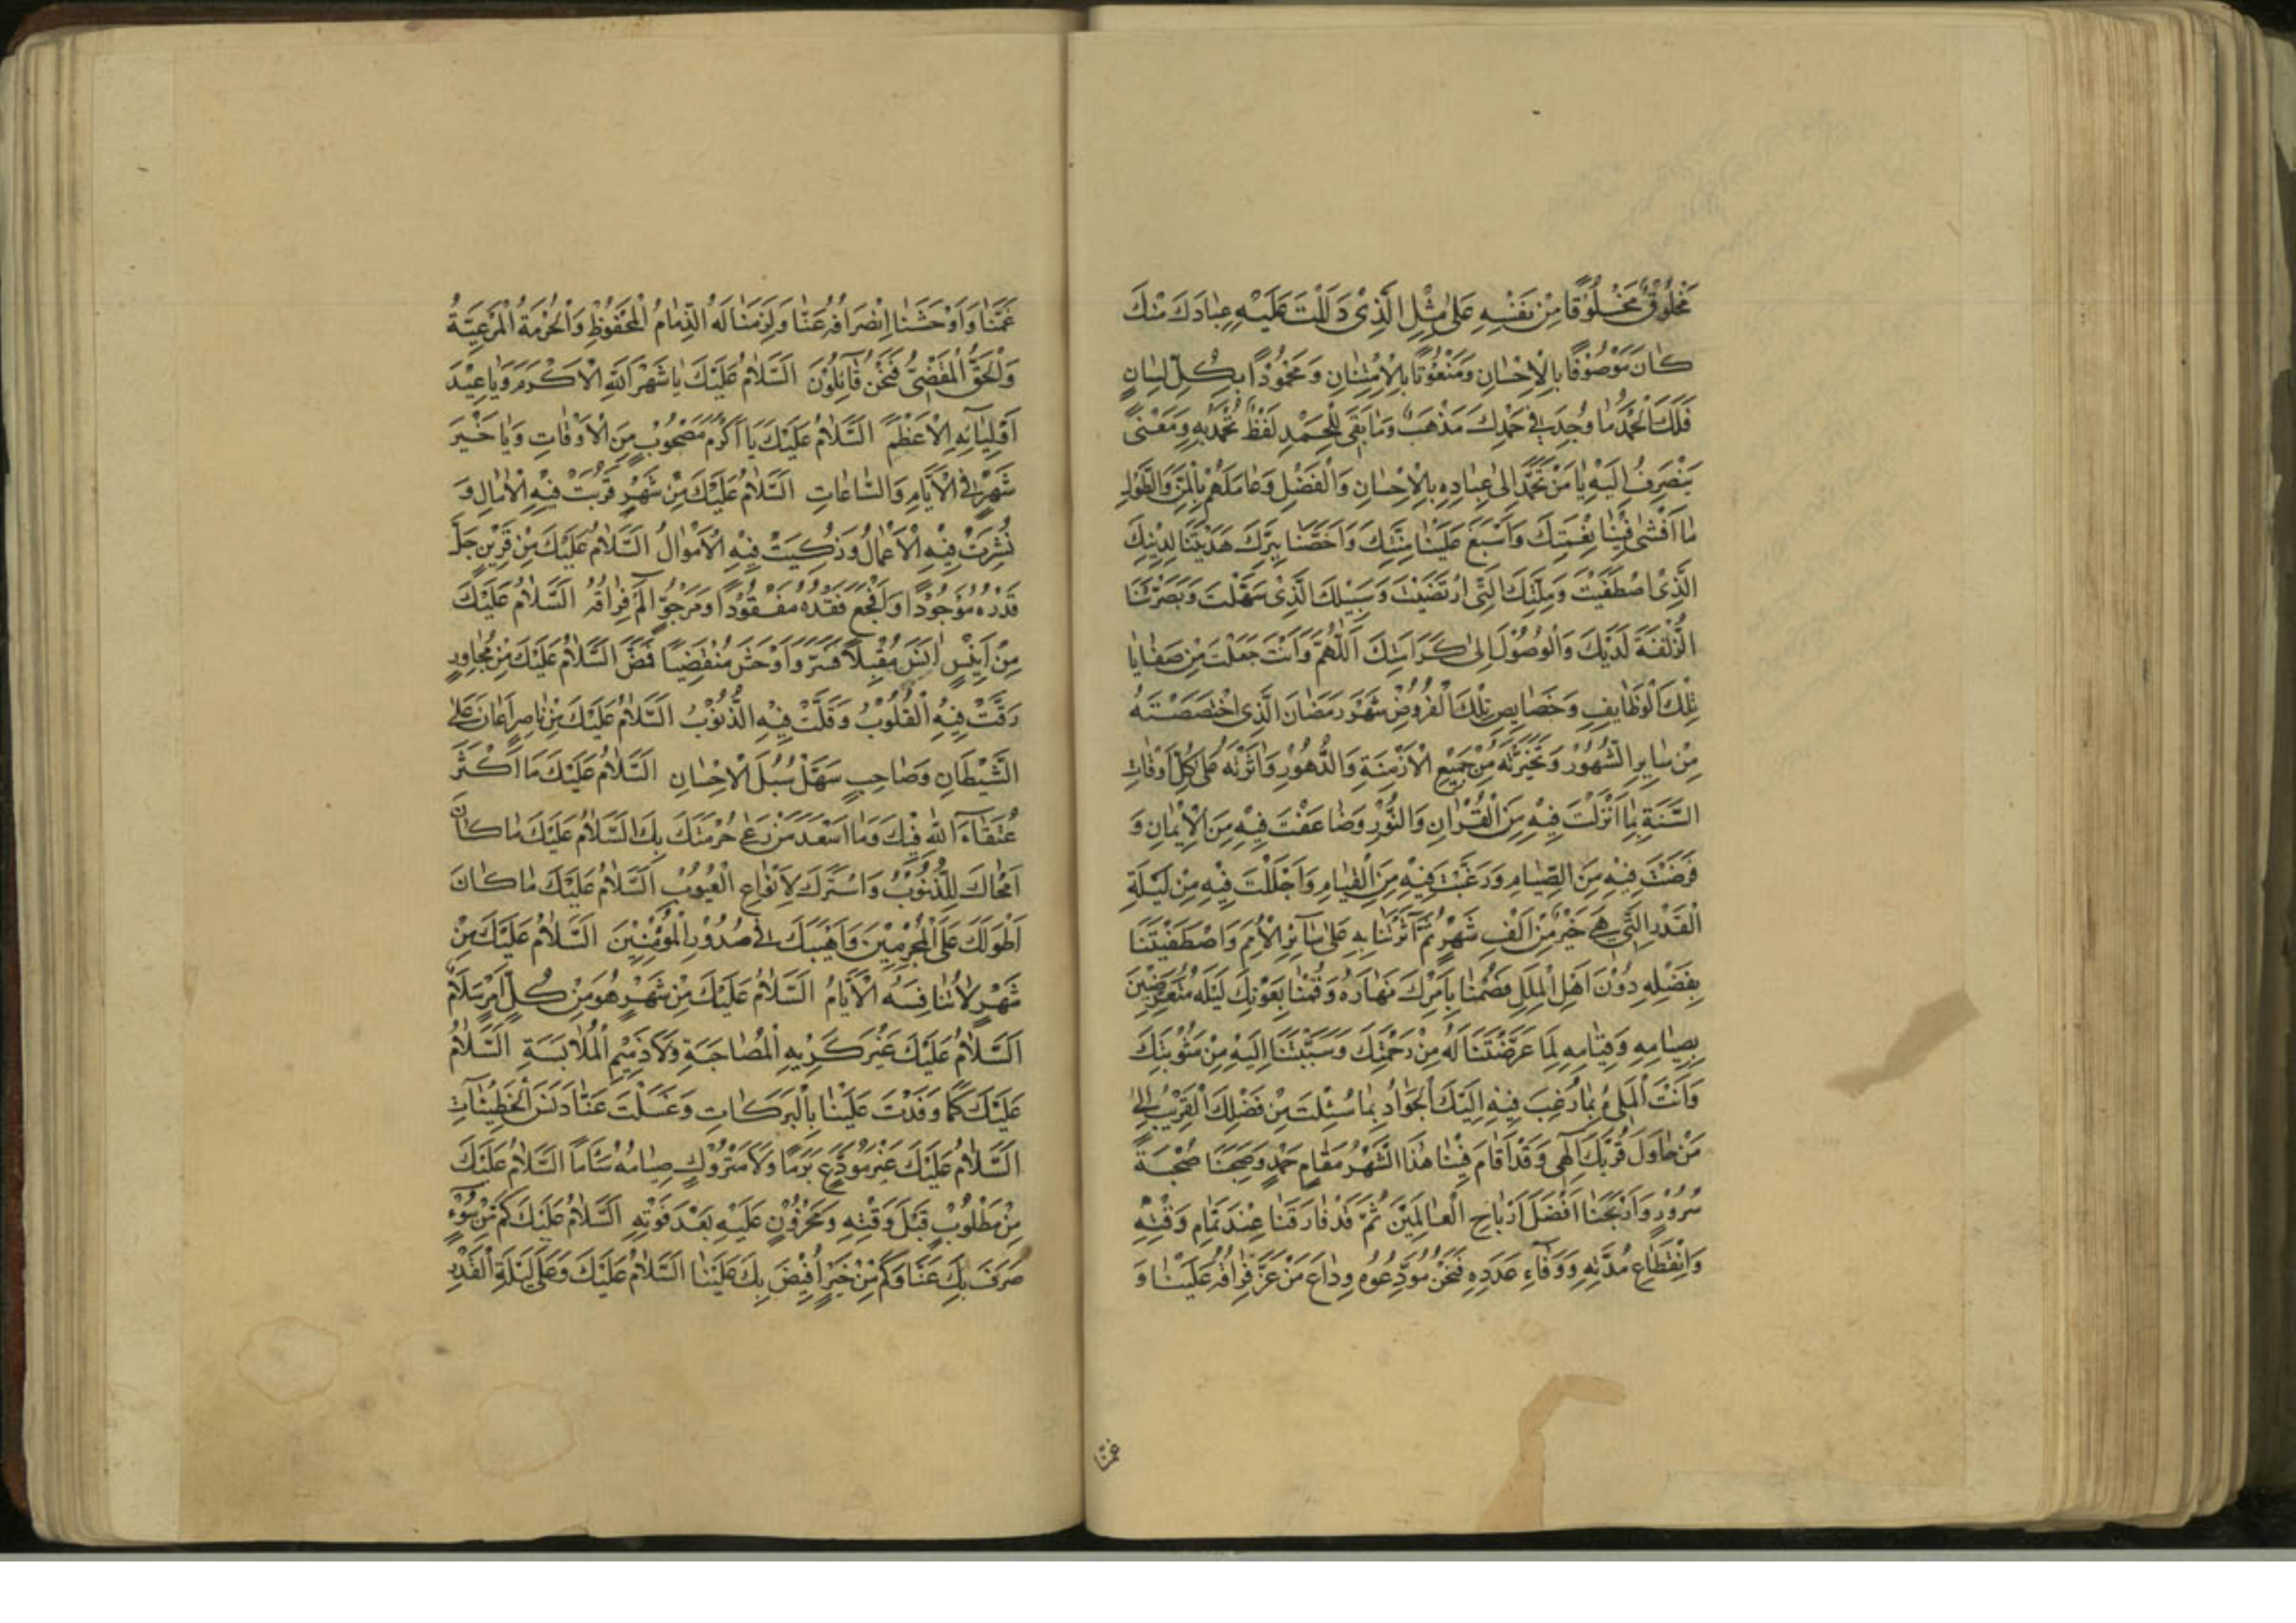 مَخْلُوْقٌ مَخْلُوْقًا مِنْ نَفْسِهِ عَلىٰ مِثْلِ الَّذِىْ دَلَلْتَ عَلَيْهِ عِبٰادَكَ مِنْكَ
كٰانَ مَوْصُوْفًا بِالْاِحْسٰانِ وَمَنْعُوْتًا بِالْاِمْتِنٰانِ وَمَحْمُوْدًا بِكُلِّ لِسٰانٍ
فَلَكَ الْحَمْدُ مٰا وُجِدَ فِىْ حَمْدِكَ مَذْهَبٌ وَمٰا بَقِىَ لِلْحَمْدِ لَفْظٌ تُحْمَدُ بِهِ وَمَعْنًى
يَنْصَرِفُ اِلَيْهِ يٰا مَنْ تَحَمَّدَ اِلىٰ عِبٰادِهِ بِالْاِحْسٰانِ وَالْفَضْلِ وَعٰامَلَهُمْ بِالْمَنِّ وَالطَّوْلِ
مٰا اَفْشىٰ فِيْنٰا نِعْمَتَكَ وَاَسْبَغَ عَلَيْنٰا مِنَّتَكَ وَاَخَصَّنٰا بِبِرِّكَ هَدَيْتَنٰا لِدِيْنِكَ
الَّذِى اصْطَفَيْتَ وَمِلَّتِكَ الَّتِى ارْتَضَيْتَ وَسَبِيْلِكَ الَّذِىْ سَهَّلْتَ وَبَصَّرْتَنٰا
الزُّلْفَةَ لَدَيْكَ وَالْوُصُوْلَ اِلىٰ كَرٰامَتِكَ اَللّٰهُمَّ وَاَنْتَ جَعَلْتَ مِنْ صَفٰايٰا
تِلْكَ الْوَظٰايِفِ وَخَصٰايِصِ تِلْكَ الْفُرُوْضِ شَهْرَ رَمَضٰانَ الَّذِى اخْتَصَصْتَهُ
مِنْ سٰايِرِ الشُّهُوْرِ وَتَخَيَّرْتَهُ مِنْ جَمِيْعِ الْاَزْمِنَةِ وَالدُّهُوْرِ وَاٰثَرْتَهُ عَلىٰ كُلِّ اَوْقٰاتِ
السَّنَةِ بِمٰا اَنْزَلْتَ فِيْهِ مِنَ الْقُرْاٰنِ وَالنُّوْرِ وَضٰاعَفْتَ فِيْهِ مِنَ الْاِيْمٰانِ وَ
فَرَضْتَ فِيْهِ مِنَ الصِّيٰامِ وَرَغَّبْتَ فِيْهِ مِنَ الْقِيٰامِ وَاَجْلَلْتَ فِيْهِ مِنْ لَيْلَةِ
الْقَدْرِ الَّتِىْ هِىَ خَيْرٌ مِنْ اَلْفِ شَهْرٍ ثُمَّ اٰثَرْتَنٰا بِهِ عَلىٰ سٰائِرِ الْاُمَمِ وَاصْطَفَيْتَنٰا
بِفَضْلِهِ دُوْنَ اَهْلِ الْمِلَلِ فَصُمْنٰا بِاَمْرِكَ نَهٰارَهُ وَقُمْنٰا بِعَوْنِكَ لَيْلَهُ مُتَعَرِّضِيْنَ
بِصِيٰامِهِ وَقِيٰامِهِ لِمٰا عَرَّضْتَنٰا لَهُ مِنْ رَحْمَتِكَ وَسَبَّبْتَنٰا اِلَيْهِ مِنْ مَثُوْبَتِكَ
وَاَنْتَ الْمَلِىْءُ بِمٰا رُغِبَ فِيْهِ اِلَيْكَ الْجَوٰادُ بِمٰا سُئِلْتَ مِنْ فَضْلِكَ الْقَرِيْبُ اِلىٰ
مَنْ حٰاوَلَ قُرْبَكَ اِلٰهِى وَقَدْ اَقٰامَ فِيْنٰا هٰذَا الشَّهْرُ مَقٰامَ حَمْدٍ وَصَحِبَنٰا صُحْبَةَ
سُرُوْرٍ وَاَرْبَحَنٰا اَفْضَلَ اَرْبٰاحِ الْعٰالَمِيْنَ ثُمَّ قَدْ فٰارَقَنٰا عِنْدَ تَمٰامِ وَقْتِهِ
وَانْقِطٰاعِ مُدَّتِهِ وَوَفٰاءِ عَدَدِهِ فَنَحْنُ مُوَدِّعُوْهُ وِدٰاعَ مَنْ عَزَّ فِرٰاقُهُ عَلَيْنٰا وَ
غَمَّنٰا
غَمَّنٰا وَاَوْحَشَنٰا اِنْصِرٰافُهُ عَنّٰا وَلَزِمَنٰا لَهُ الذِّمٰامُ الْمَحْفُوْظُ وَالْحُرْمَةُ الْمَرْعِيَّةُ
وَالْحَقُّ الْمَقْضِىُّ فَنَحْنُ قٰآئِلُوْنَ اَلسَّلٰامُ عَلَيْكَ يٰا شَهْرَ اللّٰهِ الْاَكْرَمَ وَيٰا عِيْدَ
اَوْلِيٰآئِهِ الْاَعْظَمَ اَلسَّلٰامُ عَلَيْكَ يٰا اَكْرَمَ مَصْحُوْبٍ مِنَ الْاَوْقٰاتِ وَيٰا خَيْرَ
شَهْرٍ فِى الْاَيّٰامِ وَالسّٰاعٰاتِ اَلسَّلٰامُ عَلَيْكَ مِنْ شَهْرٍ قَرُبَتْ فِيْهِ الْاٰمٰالُ وَ
نُشِرَتْ فِيْهِ الْاَعْمٰالُ وَزُكِّيَتْ فِيْهِ الْاَمْوٰالُ اَلسَّلٰامُ عَلَيْكَ مِنْ قَرِيْنٍ جَلَّ
قَدْرُهُ مَوْجُوْدًا وَاَفْجَعَ فَقْدُهُ مَفْقُوْدًا وَمَرْجُوٍّ اٰلَمَ فِرٰاقُهُ اَلسَّلٰامُ عَلَيْكَ
مِنْ اَلِيْفٍ اٰنَسَ مُقْبِلًا فَسَرَّ وَاَوْحَشَ مُنْقَضِيًا فَمَضَّ اَلسَّلٰامُ عَلَيْكَ مِنْ مُجٰاوِرٍ
رَقَّتْ فِيْهِ الْقُلُوْبُ وَقَلَّتْ فِيْهِ الذُّنُوْبُ اَلسَّلٰامُ عَلَيْكَ مِنْ نٰاصِرٍ اَعٰانَ عَلىٰ
الشَّيْطٰانِ وَصٰاحِبٍ سَهَّلَ سُبُلَ الْاِحْسٰانِ اَلسَّلٰامُ عَلَيْكَ مَا اَكْثَرَ
عُتَقٰاءَ اللّٰهِ فِيْكَ وَمٰا اَسْعَدَ مَنْ رَعىٰ حُرْمَتَكَ بِكَ اَلسَّلٰامُ عَلَيْكَ مٰا كٰانَ
اَمْحٰاكَ لِلذُّنُوْبِ وَاَسْتَرَكَ لِاَنْوٰاعِ الْعُيُوْبِ اَلسَّلٰامُ عَلَيْكَ مٰا كٰانَ
اَطْوَلَكَ عَلَى الْمُجْرِمِيْنَ وَاَهْيَبَكَ فِىْ صُدُوْرِ الْمُؤْمِنِيْنَ اَلسَّلٰامُ عَلَيْكَ مِنْ
شَهْرٍ لٰا تُنٰافِسُهُ الْاَيّٰامُ اَلسَّلٰامُ عَلَيْكَ مِنْ شَهْرٍ هُوَ مِنْ كُلِّ اَمْرٍ سَلٰامٌ
اَلسَّلٰامُ عَلَيْكَ غَيْرَ كَرِيْهِ الْمُصٰاحَبَةِ وَلٰا ذَمِيْمِ الْمُلٰابَسَةِ اَلسَّلٰامُ
عَلَيْكَ كَمٰا وَفَدْتَ عَلَيْنٰا بِالْبَرَكٰاتِ وَغَسَلْتَ عَنّٰا دَنَسَ الْخَطِيْئٰاتِ
اَلسَّلٰامُ عَلَيْكَ غَيْرَ مُوَدَّعٍ بَرَمًا وَلٰا مَتْرُوْكٍ صِيٰامُهُ سَأَمًا اَلسَّلٰامُ عَلَيْكَ
مِنْ مَطْلُوْبٍ قَبْلَ وَقْتِهِ وَمَحْزُوْنٍ عَلَيْهِ بَعْدَ فَوْتِهِ اَلسَّلٰامُ عَلَيْكَ كَمْ مِنْ سُوْءٍ
صُرِفَ بِكَ عَنّٰا وَكَمْ مِنْ خَيْرٍ اُفِيْضَ بِكَ عَلَيْنٰا اَلسَّلٰامُ عَلَيْكَ وَعَلىٰ لَيْلَةِ الْقَدْرِ